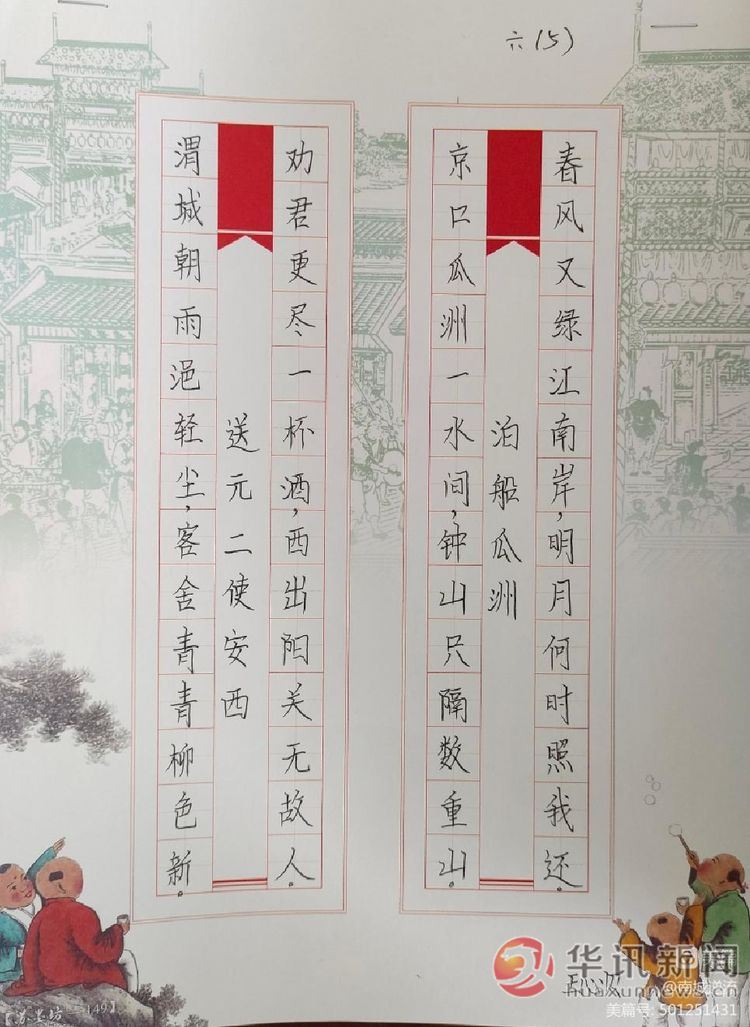 六(5)
送元二使安西
渭城朝雨浥轻尘,客舍青青柳色新。
劝君更尽一杯酒,西出阳关无故人。
泊船瓜洲
京口瓜洲一水间,钟山只隔数重山。
春风又绿江南岸,明月何时照我还。
华讯新闻
huaxunnews.cn
美篇号: 501251431
149】